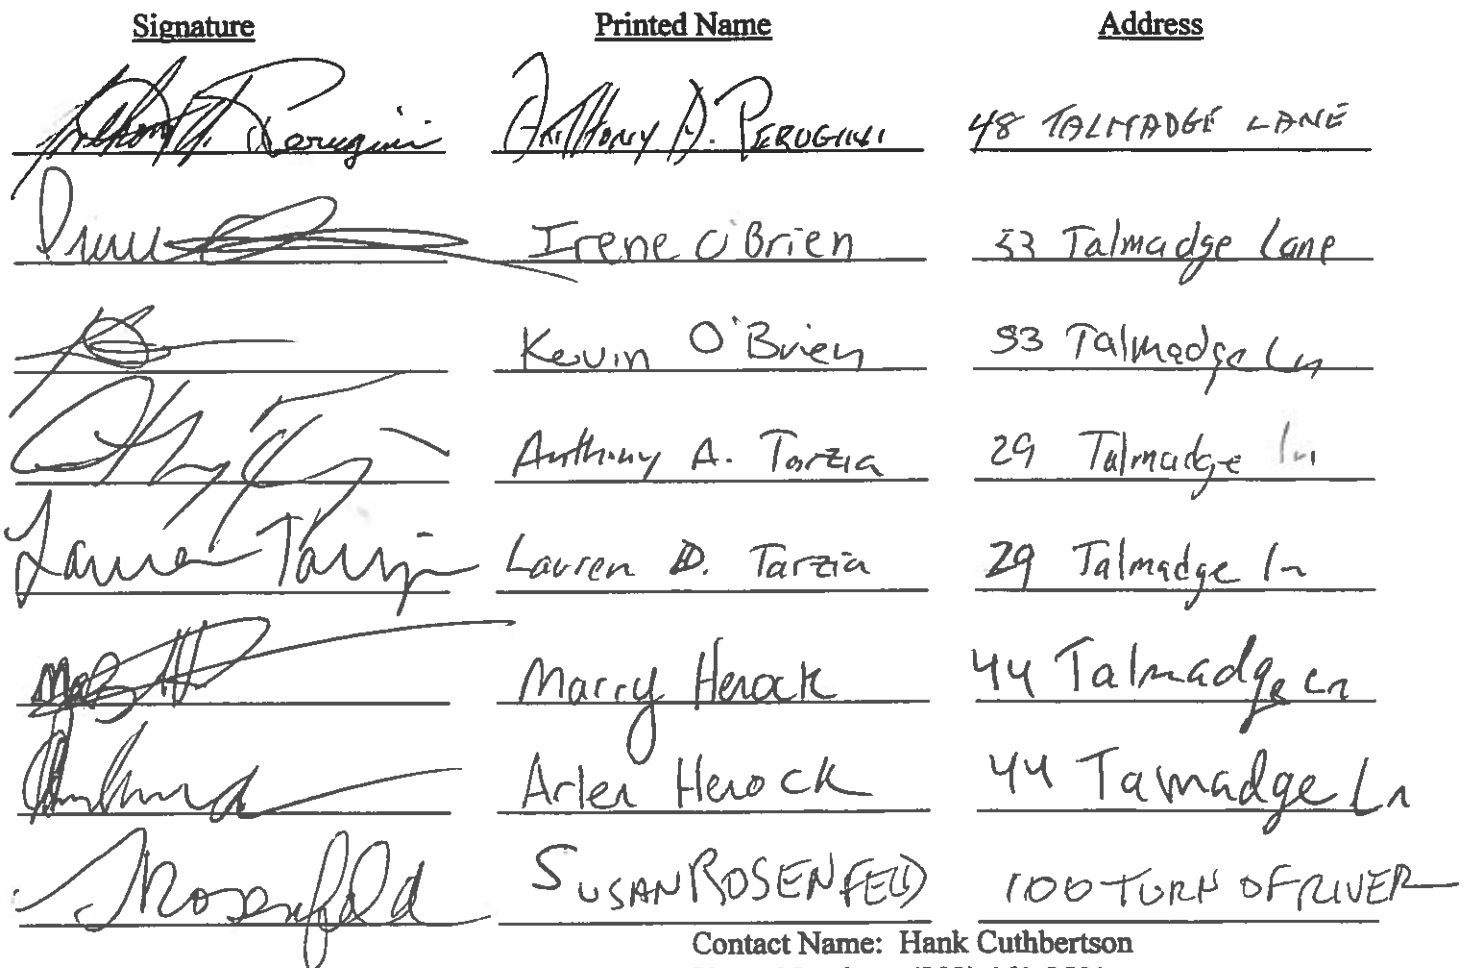 Signature Printed Name Address
Anthony D. Perugini ANTHONY D. PERUGINI 48 TALMADGE LANE
Irene O'Brien 53 Talmadge Lane
Kevin O'Brien 53 Talmadge Ln
Anthony A. Tarzia 29 Talmadge ln
Lauren Tarzia Lauren D. Tarzia 29 Talmadge ln
Marry Herock 44 Talmadge Ln
Arlen Herock 44 Tamadge Ln
Rosenfeld SUSAN ROSENFELD 100 TURN OF RIVER
Contact Name: Hank Cuthbertson